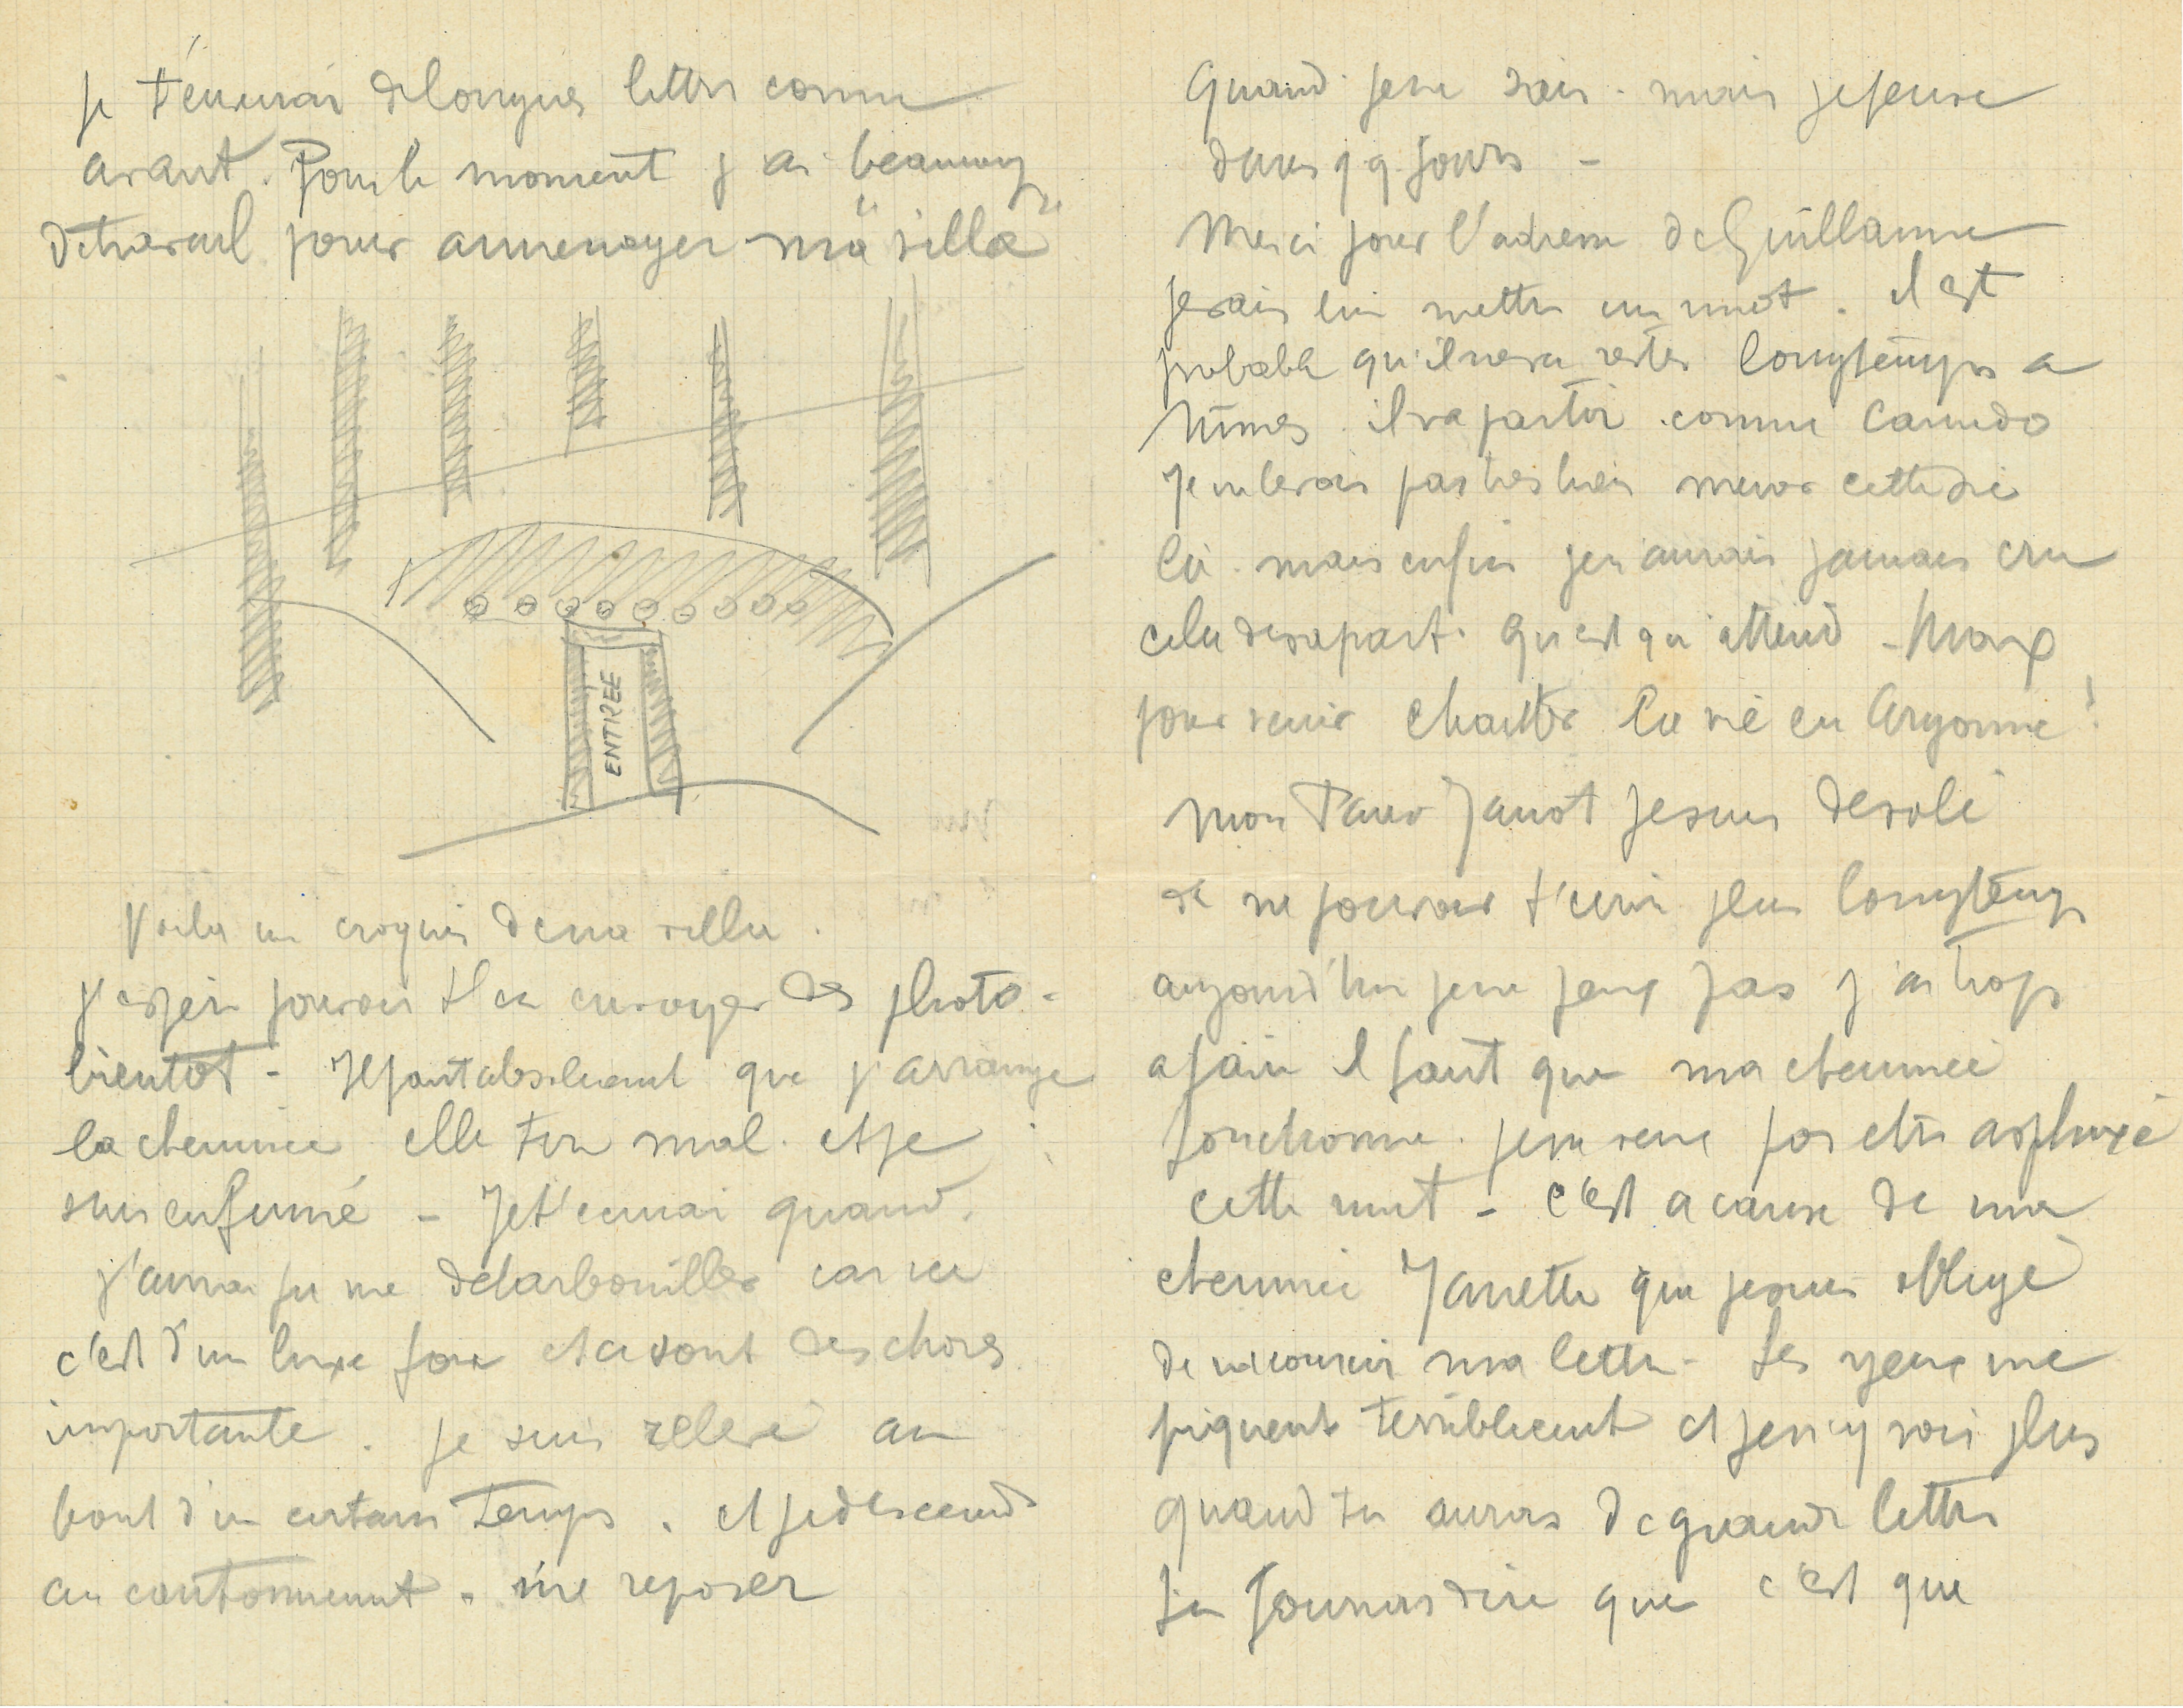 je t'écrirai de longues lettres comme
avant. Pour le moment j'ai beaucoup
de travail pour ammenager ma "villa"
ENTREE
Voila un croquis de ma villa.
j'espère pouvoir t'en envoyer des photo-
bientot - Il faut absolument que j'arrange
la cheminée elle tire mal. et je
suis enfumé - Je t'ecrirai quand
j'aurai pu me debarbouiller car ici
c'est d'un luxe fou et ce sont des choses
importante. je suis relevé au
bout d'un certain temps. et je descend
au cantonnement. me reposer
Quand je ne sais. mais je pense
dans qq jours -
Merci pour l'adresse de Guillaume
je vais lui mettre un mot. il est
probable qu'il ne va rester longtemps a
Nîmes il va partir comme Canudo
Je ne le vois pas tres bien mener cette vie
là. mais enfin je n'aurais jamais cru
cela de sa part. Qu'est qu'attend - Max
pour venir chanter la vie en Argonne!
Mon Pauv Janot je suis desolé
de ne pouvoir t'ecrire plus longtemps
aujourd'hui je ne peux pas j'ai trop
a faire il faut que ma cheminée
fonctionne. je ne veux pas etre asphyxié
cette nuit - c'est a cause de ma
cheminée Janette que je suis obligé
de racourcir ma lettre - Les yeux me
piquent terriblement et je n'y vois plus
quand tu auras de grande lettre
tu pourras dire que c'est que